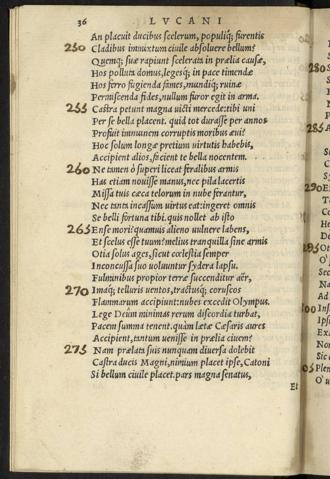 36 LVCANI
An placuit ducibus scelerum, populiq; furentis
250 Cladibus immixtum ciuile absoluere bellum?
Quemq; suæ rapiunt scelerata in prælia causæ,
Hos polluta domus, legesq; in pace timendæ
Hos ferro fugienda fames, mundiq; ruinæ
Permiscenda fides, nullum furor egit in arma.
255 Castra petunt magna uicti mercede: tibi uni
Per se bella placent. quid tot durasse per annos
Profuit immunem corruptis moribus æui?
Hoc solum longæ pretium uirtutis habebis,
Accipient alios, facient te bella nocentem.
260 Ne tamen ô superi liceat feralibus armis
Has etiam mouisse manus, nec pila lacertis
Missa tuis cæca telorum in nube ferantur,
Nec tanta incassum uirtus eat: ingeret omnis
Se belli fortuna tibi. quis nollet ab isto
265 Ense mori? quamuis alieno uulnere labens,
Et scelus esse tuum? melius tranquilla sine armis
Otia solus ages, sicut cœlestia semper
Inconcussa suo uoluuntur sydera lapsu.
Fulminibus propior terræ succenditur aër,
270 Imaq; telluris uentos, tractusq; coruscos
Flammarum accipiunt: nubes excedit Olympus.
Lege Deûm minimas rerum discordia turbat,
Pacem summa tenent. quàm lætæ Cæsaris aures
Accipient, tantum uenisse in prælia ciuem?
275 Nam prælata suis nunquam diuersa dolebit
Castra ducis Magni, nimium placet ipse, Catoni
Si bellum ciuile placet. pars magna senatus,
Et